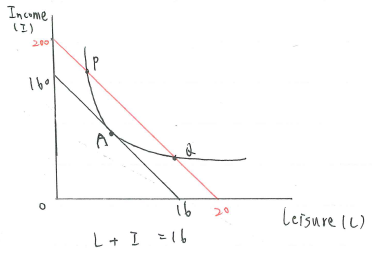 Income
(I)
200
P
160
A
Q
0
16
20
Leisure (L)
L + I = 16